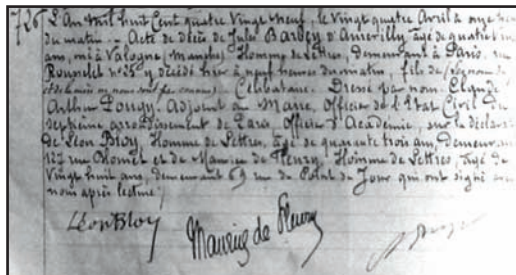 726 L'An mil huit Cent quatre Vingt Neuf, le Vingt quatre Avril à onze heu
du matin. — Acte de décès de Jules Barbey d'Aurevilly, âgé de quatre
ans, né à Valogne (Manche) Homme de Lettres, demeurant à Paris, rue
Rousselet n° 25 y décédé hier à neuf heures du matin, fils de
Célibataire. Dressé par nous, Claude
Arthur adjoint au Maire, Officier de l'Etat Civil du
septième arrondissement de Paris Officier d'Académie, sur la déclara
de Léon Bloy, Homme de Lettres, âgé de quarante trois ans, demeuran
127 rue Blomet et de Maurice de Fleury, Homme de Lettres, âgé de
Vingt huit ans, demeurant 69 rue du Point du Jour qui ont signé avec
nous après lecture,
Léon Bloy
Maurice de Fleury